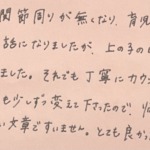 関節周りが無くなり、育児
話になりましたが、上の子の
ました。それでも丁寧にカウ
も少しずつ変えて下さったので、
い文章ですいません。とても良か